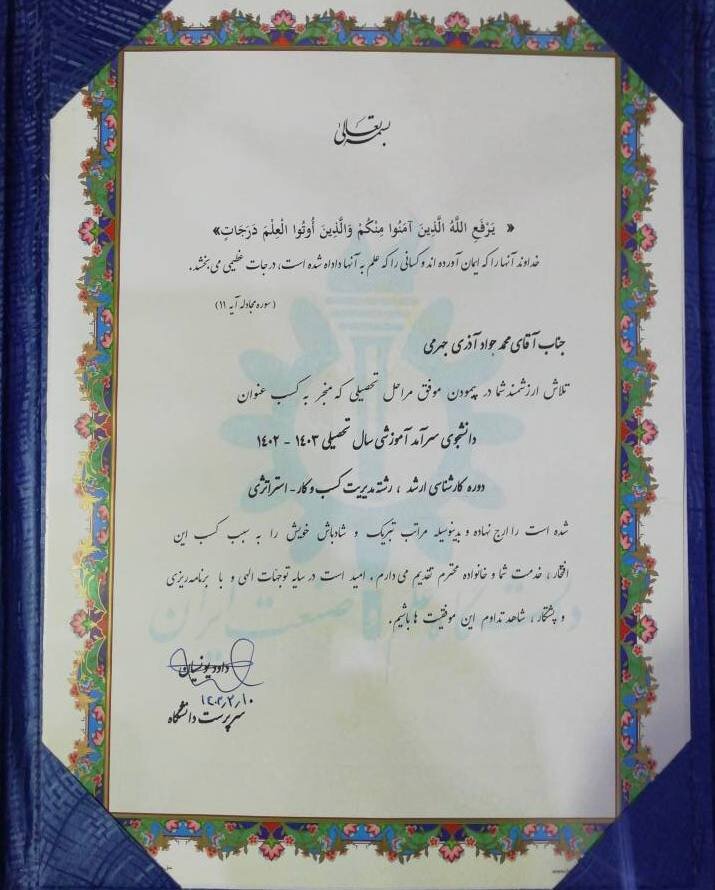 بسمه تعالی
« يَرْفَعِ اللَّهُ الَّذِينَ آمَنُوا مِنْكُمْ وَالَّذِينَ أُوتُوا الْعِلْمَ دَرَجَاتٍ»
خداوند آنها را که ایمان آورده اند و کسانی را که علم به آنها داداه شده است، درجات عظیمی می بخشد.
(سوره مجادله آیه ۱۱)
جناب آقای محمد جواد آذری جهرمی
تلاش ارزشمند شما در پیمودن موفق مراحل تحصیلی که منجر به کسب عنوان
دانشجوی سرآمد آموزشی سال تحصیلی ۱۴۰۳ - ۱۴۰۲
دوره کارشناسی ارشد ، رشته مدیریت کسب و کار - استراتژی
شده است را ارج نهاده و بدینوسیله مراتب تبریک و شادباش خویش را به سبب کسب این
افتخار ، خدمت شما و خانواده محترم تقدیم می دارم . امید است در سایه توجهات الهی و با برنامه ریزی
و پشتکار ، شاهد تداوم این موفقیت ها باشیم.
دانشگاه علم و صنعت ایران
داود یونسیان
سرپرست دانشگاه